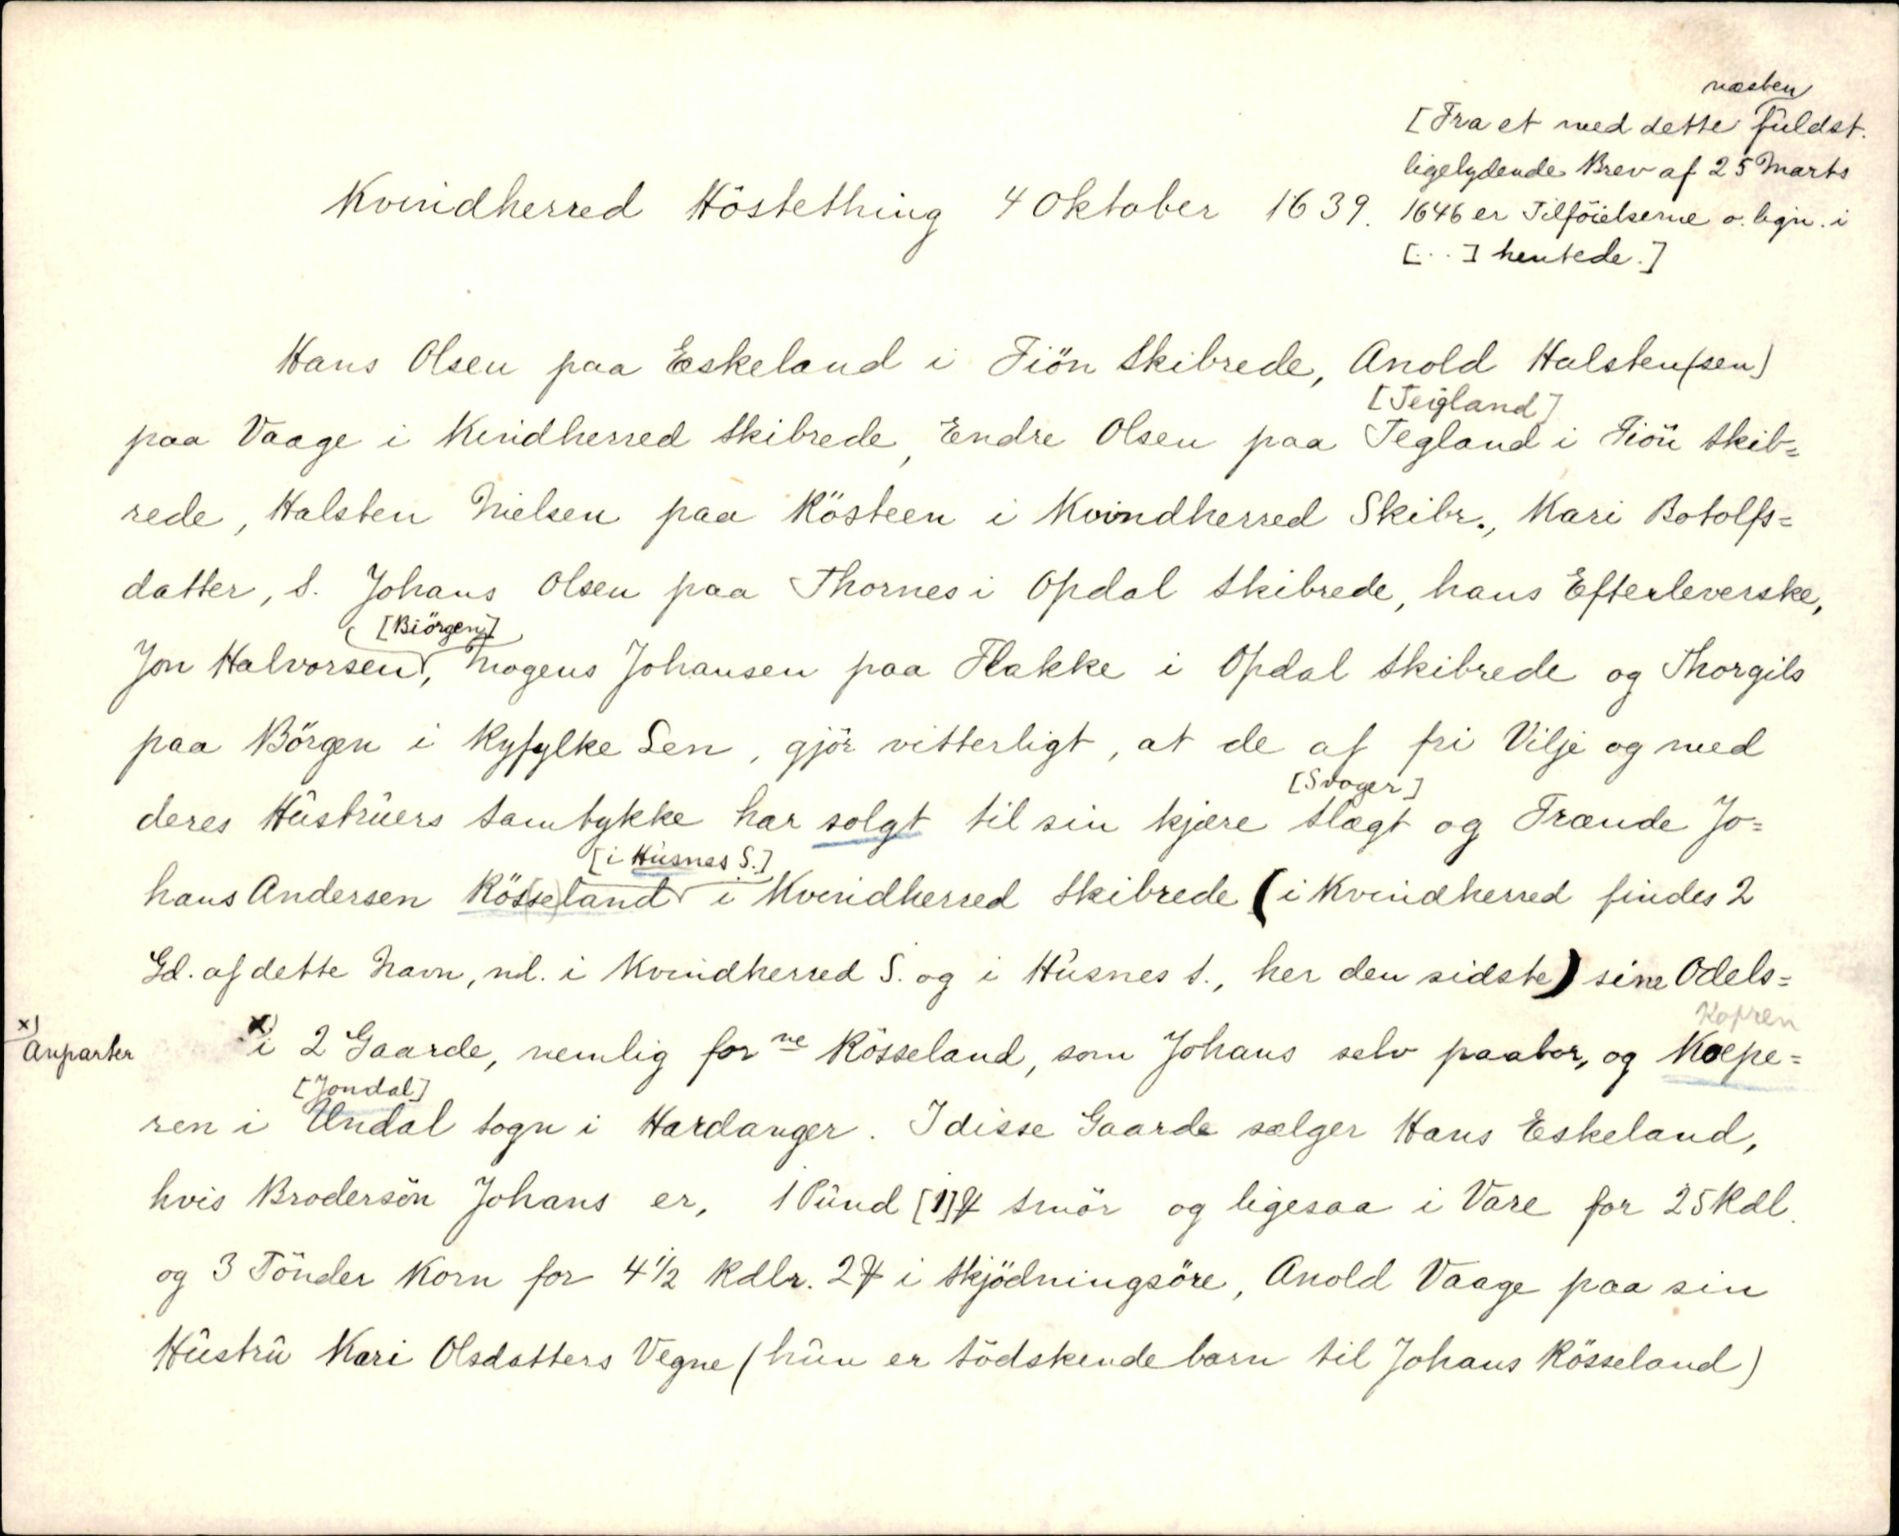 næsten
[Fra et med dette fuldst.
ligelydende Brev af 25 Marts
Kvindherred Höstething 4 Oktober 1639.
1646 er Tilföielserne o. lign. i
[...] hentede.]
Hans Olsen paa Eskeland i Fiön Skibrede, Anold Halsten(sen)
[Teigland]
paa Vaage i Kvindherred Skibrede, Endre Olsen paa Tegland i Fiön Skib=
rede, Halsten Nielsen paa Rösteen i Kvindherred Skibr., Kari Botolfs=
datter, S. Johans Olsen paa Thornes i Opdal Skibrede, hans Efterleverske,
[Biörgen]
Jon Halvorsen, Mogens Johansen paa Flakke i Opdal Skibrede og Thorgils
paa Börgen i Ryfylke Len, gjör vitterligt, at de af fri Vilje og med
[Svoger]
deres Hustruers Samtykke har solgt til sin kjære Slægt og Frænde Jo=
[i Husnes S.]
hans Andersen Rös(se)land i Kvindherred Skibrede (i Kvindherred findes 2
Gd. af dette Navn, nl. i Kvindherred S. og i Husnes S., her den sidste) sine Odels=
Kopren
x)
Anparter
x) i 2 Gaarde, nemlig for ne Rösseland, som Johans selv paabor, og Koepe=
[Jondal]
ren i Undal Sogn i Hardanger. I disse Gaarde sælger Hans Eskeland,
hvis Brodersön Johans er, 1 Pund [1] ℔ Smör og ligesaa i Vare for 25 Rdl.
og 3 Tönder Korn for 4½ Rdlr. 2 ℔ i Skjödningsöre, Anold Vaage paa sin
Hustru Kari Olsdatters Vegne (hun er Södskendebarn til Johans Rösseland)